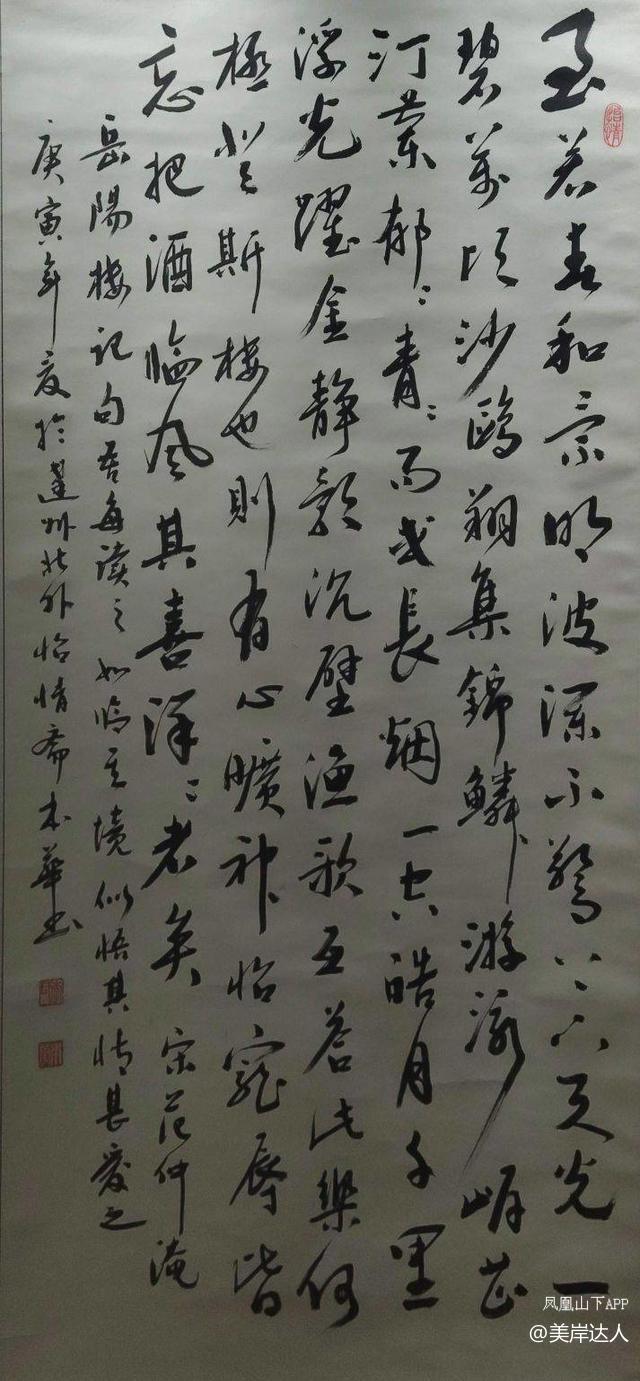 怡情
至若春和景明波瀾不驚上下天光一
碧萬頃沙鷗翔集錦鱗游泳岸芷
汀蘭郁〻青〻而或長烟一空皓月千里
浮光躍金靜影沉璧漁歌互荅此樂何
極登斯樓也則有心曠神怡寵辱皆
忘把酒臨風其喜洋〻者矣 宋范仲淹
岳陽樓記句吾每讀之如臨其境似悟其情甚愛之
庚寅年夏於達州北外怡情齋本華書
凤凰山下APP
@美岸达人